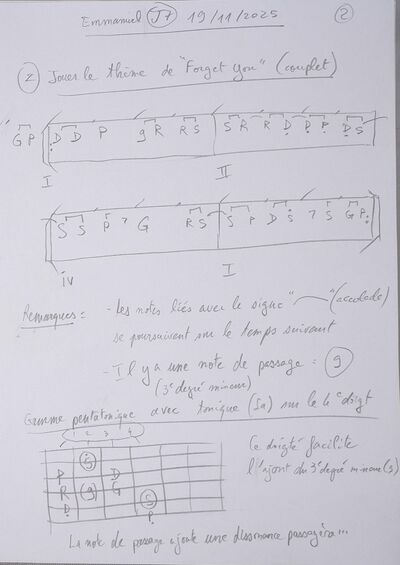 Emmanuel J+ 19/11/2025 2
2 Jouer le thème de "Forget You" (couplet)
G P D D P g R R S S R R D P P D S
I II
S S P 7 G R S S P D S 7 S G P
iv I
Remarques : - Les notes liés avec le signe "⁀" (accolade)
se poursuivent sur le temps suivant
- Il y a une note de passage : g
(3e degré mineur)
Gamme pentatonique avec tonique (Sa) sur le 4e doigt
1 2 3 4
g
P D
R g G
D S
P
Ce doigté facilite
l'ajout du 3e degré mineur (g)
La note de passage ajoute une dissonance passagère...